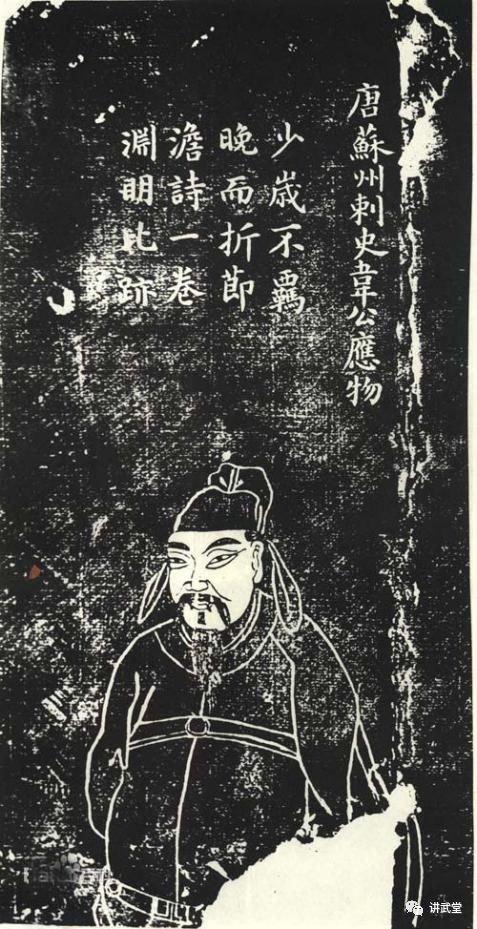 唐蘇州刺史韋公應物
少歲不羈
晚而折節
澹詩一卷
淵明比跡
讲武堂